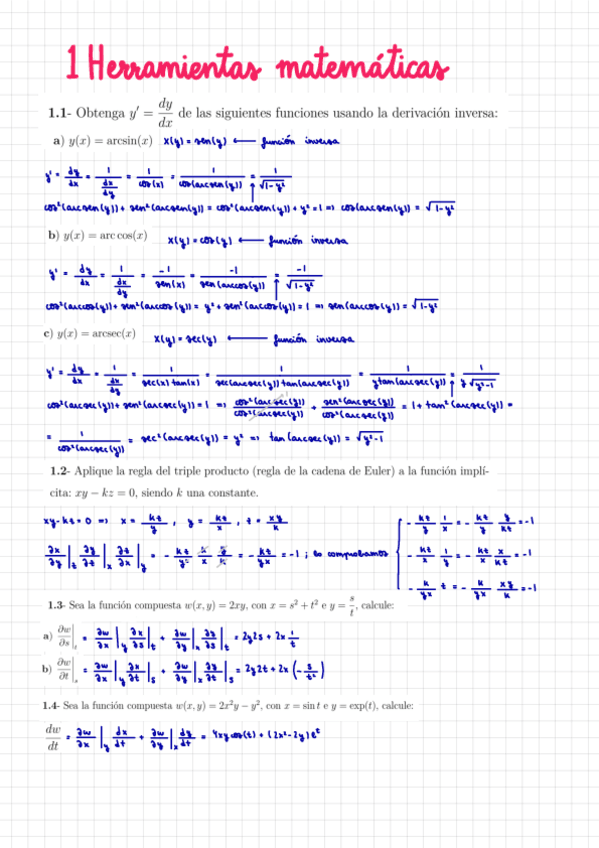 1 Herramientas matemáticas
1.1- Obtenga y' = dy/dx de las siguientes funciones usando la derivación inversa:
a) y(x) = arcsin(x) x(y) = sen(y) ← función inversa
y' = dy/dx = 1/(dx/dy) = 1/cos(x) = 1/cos(arcsen(y)) = 1/√(1-y²)
cos²(arcsen(y)) + sen²(arcsen(y)) = cos²(arcsen(y)) + y² = 1 ⇒ cos(arcsen(y)) = √(1-y²)
b) y(x) = arc cos(x) x(y) = cos(y) ← función inversa
y' = dy/dx = 1/(dx/dy) = -1/sen(x) = -1/sen(arccos(y)) = -1/√(1-y²)
cos²(arccos(y)) + sen²(arccos(y)) = y² + sen²(arccos(y)) = 1 ⇒ sen(arccos(y)) = √(1-y²)
c) y(x) = arcsec(x) x(y) = sec(y) ← función inversa
y' = dy/dx = 1/(dx/dy) = 1/(sec(x) tan(x)) = 1/(sec(arcsec(y)) tan(arcsec(y))) = 1/(y tan(arcsec(y))) = 1/(y √(y²-1))
cos²(arcsec(y)) + sen²(arcsec(y)) = 1 ⇒ cos²(arcsec(y))/cos²(arcsec(y)) + sen²(arcsec(y))/cos²(arcsec(y)) = 1 + tan²(arcsec(y)) =
= 1/cos²(arcsec(y)) = sec²(arcsec(y)) = y² ⇒ tan(arcsec(y)) = √(y²-1)
1.2- Aplique la regla del triple producto (regla de la cadena de Euler) a la función implí-
cita: xy − kz = 0, siendo k una constante.
xy - kz = 0 ⇒ x = kz/y , y = kz/x , z = xy/k
∂x/∂y|z ∂y/∂z|x ∂z/∂x|y = - kz/y² k/x y/k = - kz/yx = -1 ; lo comprobamos
- kz/y 1/x = - kz/y y/kz = -1
- kz/x 1/y = - kz/x x/kz = -1
- k/yx z = - k/yx xy/k = -1
1.3- Sea la función compuesta w(x, y) = 2xy, con x = s² + t² e y = s/t, calcule:
a) ∂w/∂s|t = ∂w/∂x|y ∂x/∂s|t + ∂w/∂y|x ∂y/∂s|t = 2y2s + 2x 1/t
b) ∂w/∂t|s = ∂w/∂x|y ∂x/∂t|s + ∂w/∂y|x ∂y/∂t|s = 2y2t + 2x (- s/t²)
1.4- Sea la función compuesta w(x, y) = 2x²y − y², con x = sin t e y = exp(t), calcule:
dw/dt = ∂w/∂x|y dx/dt + ∂w/∂y|x dy/dt = 4xy cos(t) + (2x² - 2y) eᵗ